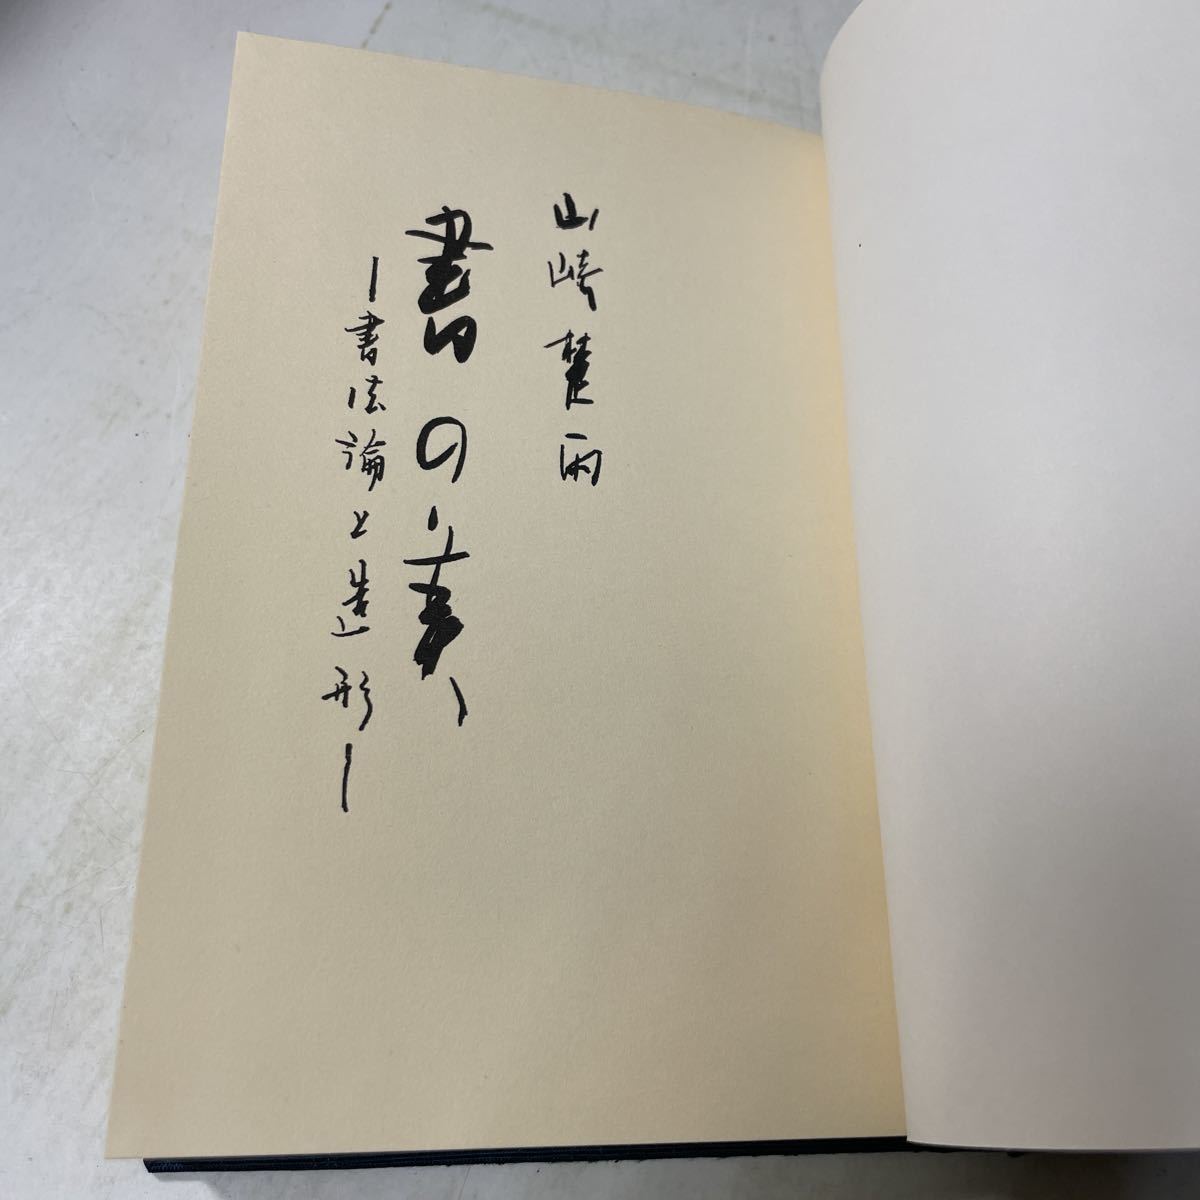 山崎楚雨
書の美
―書法論と造形―